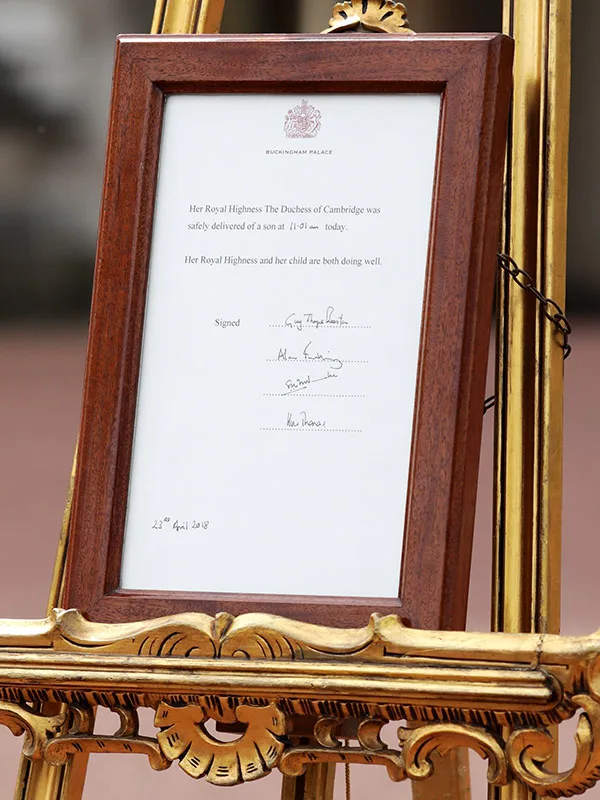 BUCKINGHAM PALACE
Her Royal Highness The Duchess of Cambridge was
safely delivered of a son at 11-01 am today.
Her Royal Highness and her child are both doing well.
Signed Guy Thorpe-Beeston
Alan Farthing
Huw Thomas
23rd April 2018